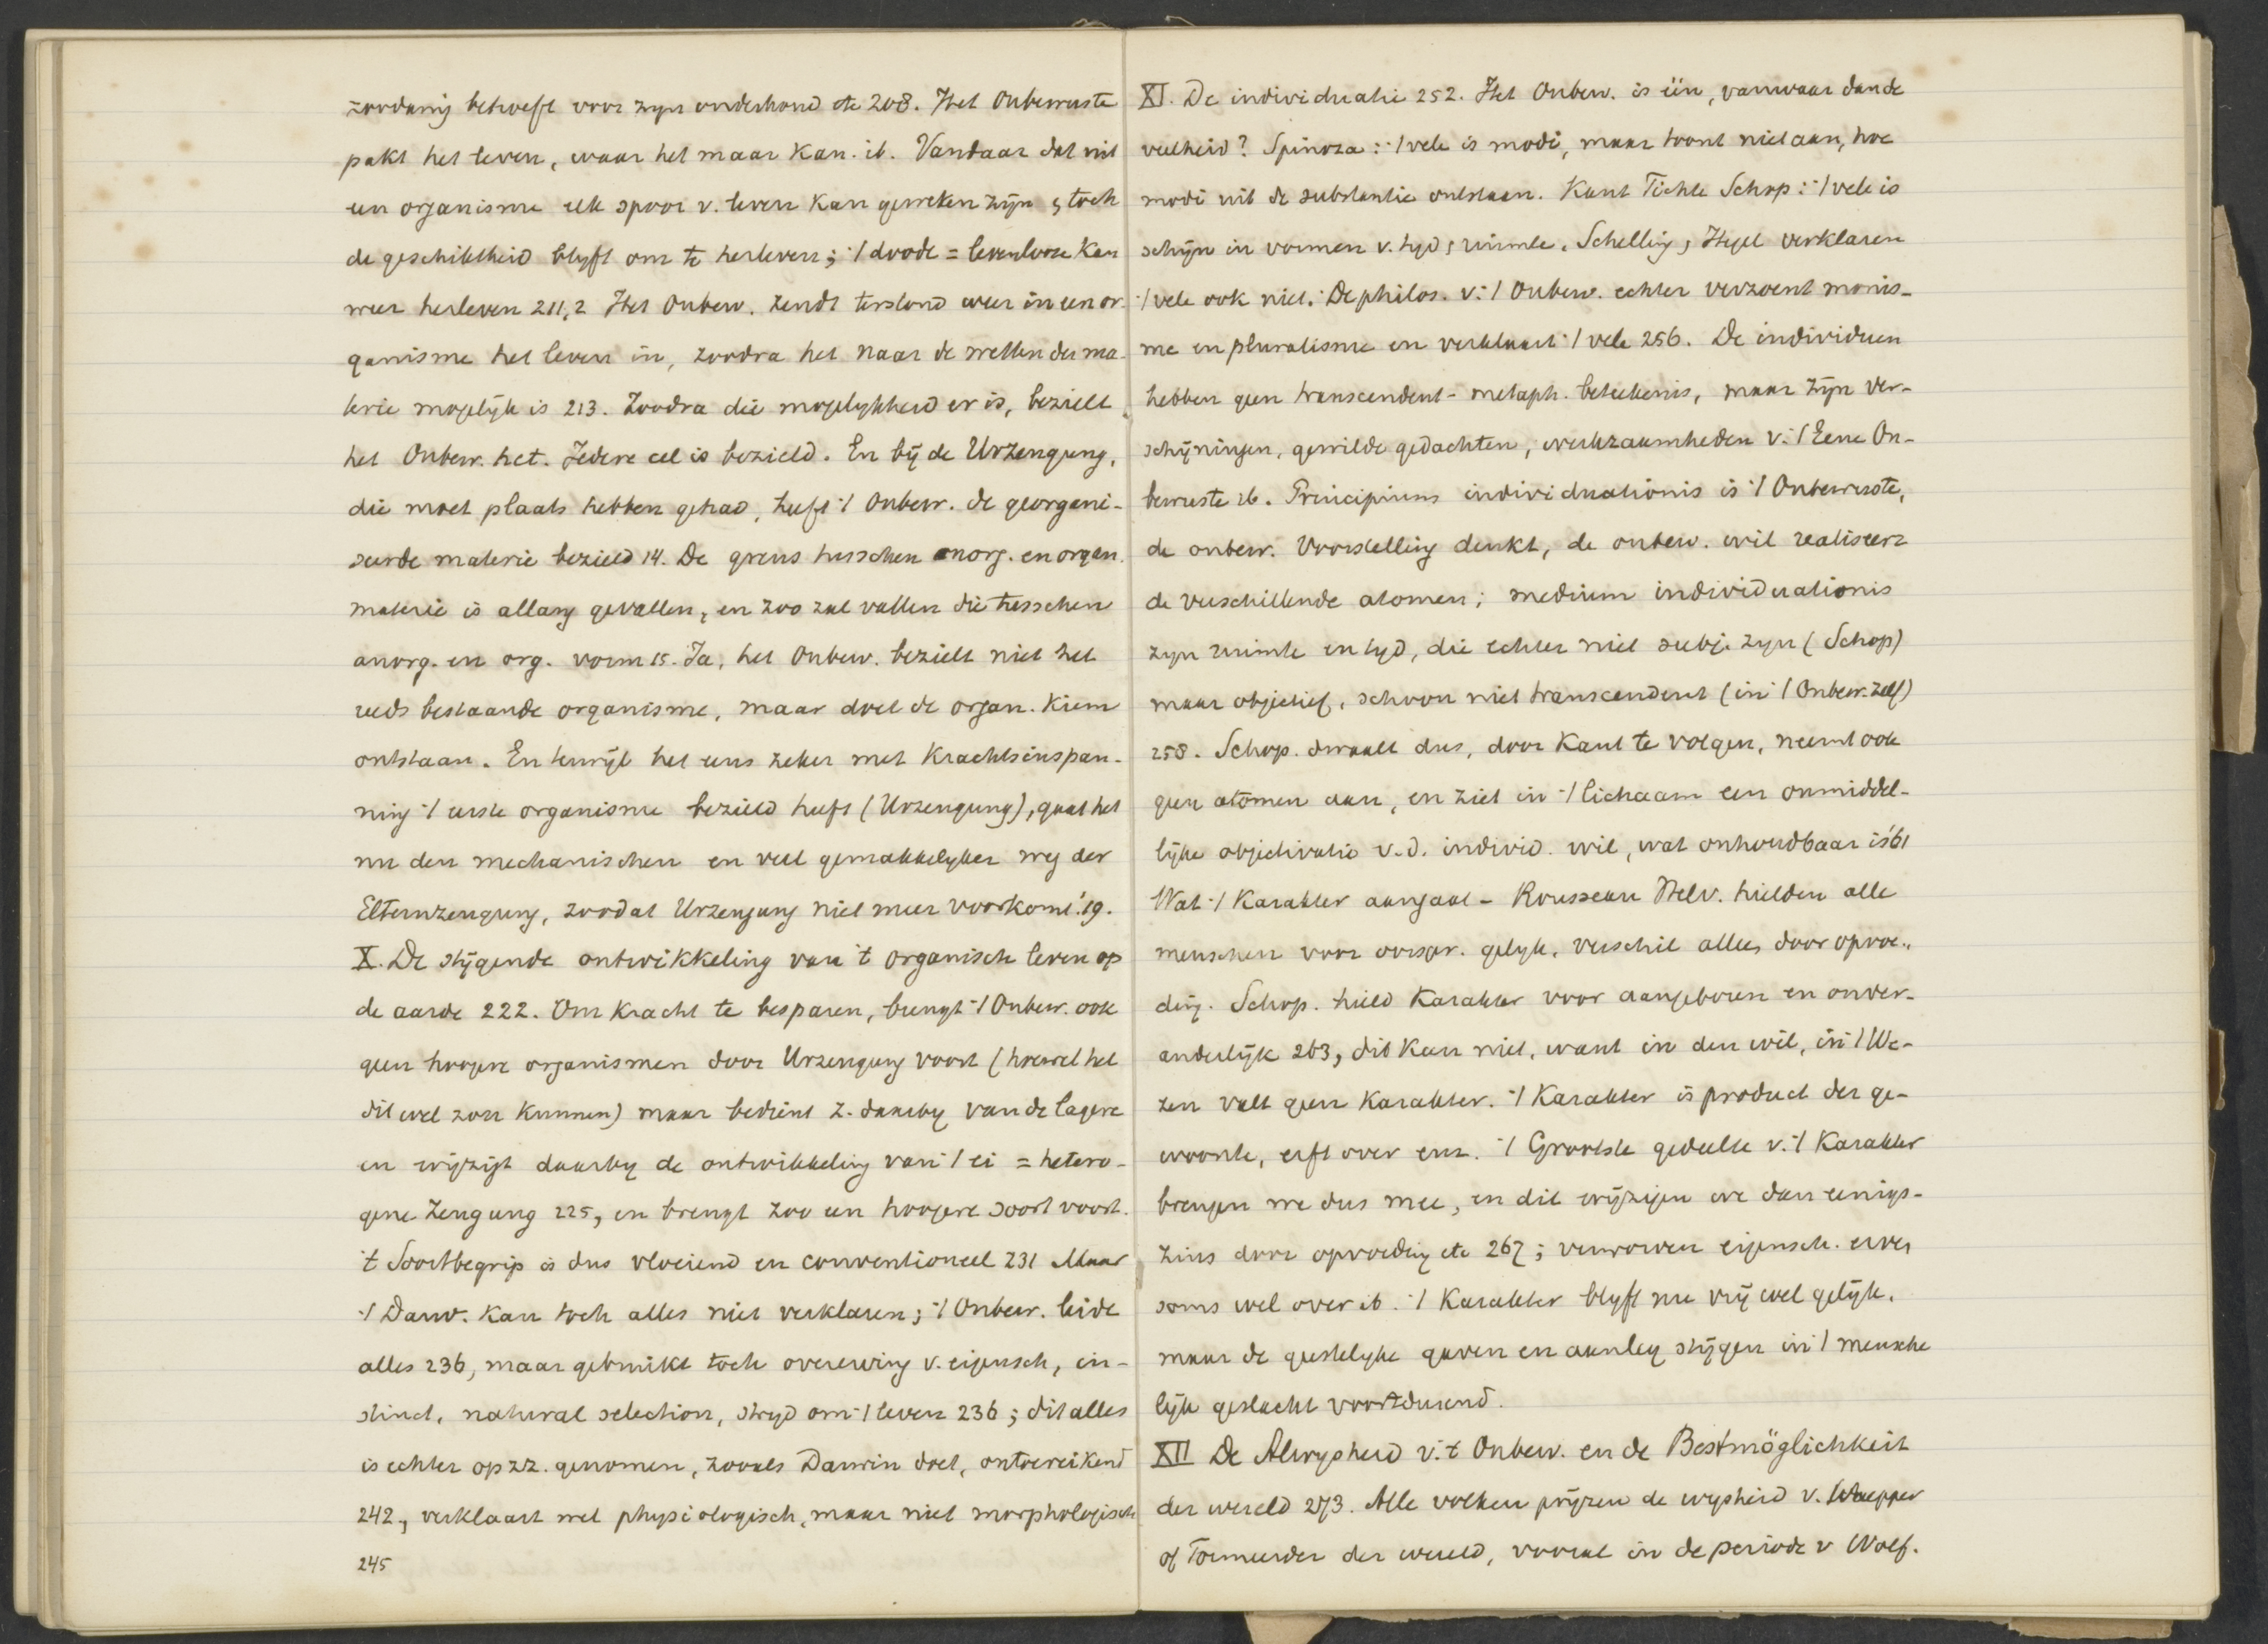 zoodanig behoeft voor zyn onderhoud etc 208. Het Onbewuste
pakt het leven, waar het maar kan. ib. Vandaar dat uit
een organisme elk spoor v. leven kan geweken zijn & toch
de geschiktheid blyft om te herleven; 't doode = levenlooze kan
weer herleven 211,2 Het Onbew. zendt terstond weer in een or-
ganisme het leven in, zoodra het naar de wetten der ma-
terie mogelijk is 213. Zoodra die mogelykheid er is, bezielt
het Onbew. het. Iedere cel is bezield. En bij de Urzeugung,
die moet plaats hebben gehad, heeft 't Onbew. de georgani-
seerde materie bezield 14. De grens tusschen anorg. en organ.
materie is allang gevallen, en zoo zal vallen die tusschen
anorg. en org. vorm 15. Ja, het Onbew. bezielt niet het
reeds bestaande organisme, maar doet de organ. Kiem
ontstaan. En terwijl het eens zeker met Krachtsinspan-
ning 't eerste organisme bezield heeft (Urzeugung), gaat het
nu den mechanischen en veel gemakkelyker weg der
Elternzeugung, zoodat Urzeugung niet meer voorkomt. '19.
X. De stijgende ontwikkeling van 't organisch leven op
de aarde 222. Om kracht te besparen, brengt 't Onbew. ook
geen hoogere organismen door Urzeugung voort (hoewel het
dit wel zou kunnen) maar bedient z. daarby van de lagere
en wijzigt daarby de ontwikkeling van 't ei = hetero-
gene Zeugung 225, en brengt zoo een hoogere soort voort.
't Soortbegrip is dus vloeiend en conventioneel 231 Maar
't Darw. kan toch alles niet verklaren; 't Onbew. leide
alles 236, maar gebruikt toch overerving v. eigensch, in-
stinct, natural selection, stryd om 't leven 236; dit alles
is echter op zz. genomen, zooals Darwin doet, ontoereikend
242, verklaart wel physiologisch, maar niet morphologisch
245
XI. De individuatie 252. Het Onbew. is één, vanwaar dan de
veelheid? Spinoza: 't vele is modi, maar toont niet aan, hoe
modi uit de substantie ontstaan. Kant Fichte Schop: 't vele is
schijn in vormen v. tyd & ruimte. Schelling & Hegel verklaren
't vele ook niet. De philos. v. 't Onbew. echter verzoent monis-
me en pluralisme en verklaart 't vele 256. De individuen
hebben geen transcendent-metaph. beteekenis, maar zijn ver-
schijningen, gewilde gedachten, werkzaamheden v. 't Eene On-
bewuste ib. Principium individuationis is 't Onbewuste,
de onbew. Voorstelling denkt, de onbew. wil realiseert
de verschillende atomen; medium individuationis
zyn ruimte en tyd, die echter niet subj. zyn (Schop)
maar objectief, schoon niet transcendent (in 't Onbew. zelf)
258. Schop. dwaalt dus, door Kant te volgen, neemt ook
geen atomen aan, en ziet in 't lichaam een onmiddel-
lijke objectivatie v. d. individ. wil, wat onhoudbaar is '61
Wat 't Karakter aangaat - Rousseau Helv. hielden alle
menschen voor oorspr. gelyk, verschil alles door opvoe-
ding. Schop. hield Karakter voor aangeboren en onver-
anderlijk 263, dit kan niet, want in den wil, in 't We-
zen valt geen Karakter. 't Karakter is product der ge-
woonte, erft over enz. 't Grootste gedeelte v. 't Karakter
brengen we dus mee, en dit wijzigen we dan eenigs-
zins door opvoeding etc 267; verworven eigensch. erven
soms wel over ib. 't Karakter blyft nu vrij wel gelijk,
maar de geestelyke gaven en aanleg stijgen in 't mensche
lijk geslacht voortdurend.
XII De Alwysheid v. 't Onbew. en de Bestmöglichkeit
der wereld 273. Alle volken prijzen de wysheid v. Schepper
of Formeerder der wereld, vooral in de periode v Wolf.